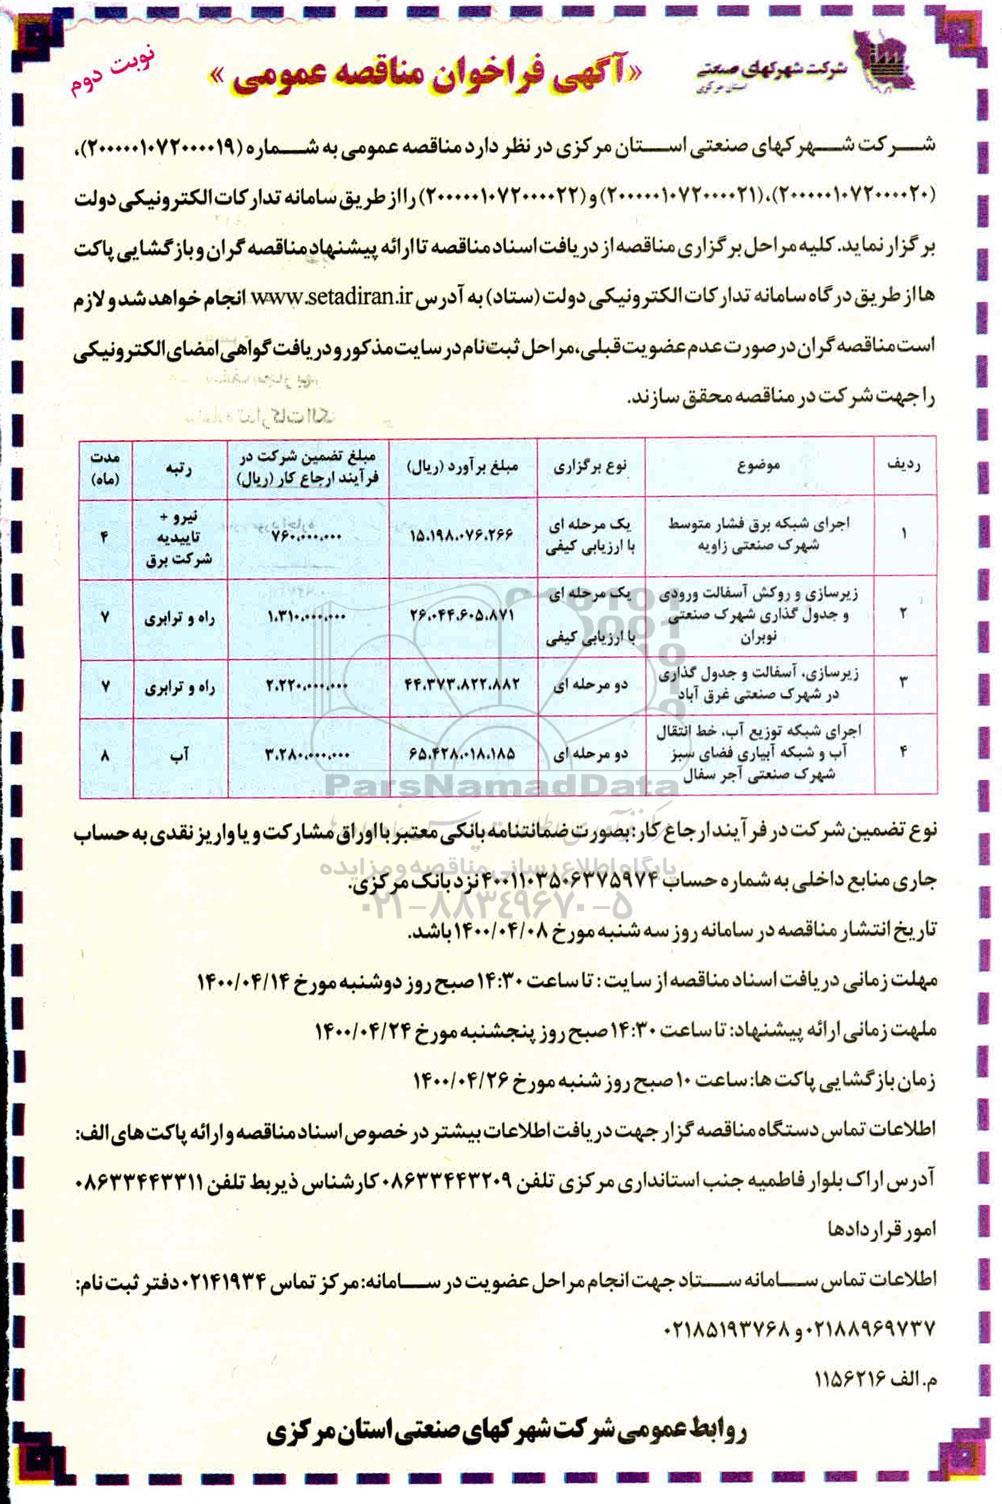 شرکت شهرکهای صنعتی
استان مرکزی
«آگهی فراخوان مناقصه عمومی»
نوبت دوم
شرکت شهرکهای صنعتی استان مرکزی در نظر دارد مناقصه عمومی به شماره (۲۰۰۰۰۰۱۰۷۲۰۰۰۰۱۹)،
(۲۰۰۰۰۰۱۰۷۲۰۰۰۰۲۰)، (۲۰۰۰۰۰۱۰۷۲۰۰۰۰۲۱) و (۲۰۰۰۰۰۱۰۷۲۰۰۰۰۲۲) را از طریق سامانه تدارکات الکترونیکی دولت
برگزار نماید. کلیه مراحل برگزاری مناقصه از دریافت اسناد مناقصه تا ارائه پیشنهاد مناقصه گران و بازگشایی پاکت
ها از طریق درگاه سامانه تدارکات الکترونیکی دولت (ستاد) به آدرس www.setadiran.ir انجام خواهد شد و لازم
است مناقصه گران در صورت عدم عضویت قبلی، مراحل ثبت نام در سایت مذکور و دریافت گواهی امضای الکترونیکی
را جهت شرکت در مناقصه محقق سازند.
ردیف | موضوع | نوع برگزاری | مبلغ برآورد (ریال) | مبلغ تضمین شرکت در فرآیند ارجاع کار (ریال) | رتبه | مدت (ماه)
۱ | اجرای شبکه برق فشار متوسط شهرک صنعتی زاویه | یک مرحله ای با ارزیابی کیفی | ۱۵.۱۹۸.۰۷۶.۲۶۶ | ۷۶۰.۰۰۰.۰۰۰ | نیرو + تاییدیه شرکت برق | ۴
۲ | زیرسازی و روکش آسفالت ورودی و جدول گذاری شهرک صنعتی نوبران | یک مرحله ای با ارزیابی کیفی | ۲۶.۰۴۴.۶۰۵.۸۷۱ | ۱.۳۱۰.۰۰۰.۰۰۰ | راه و ترابری | ۷
۳ | زیرسازی، آسفالت و جدول گذاری در شهرک صنعتی غرق آباد | دو مرحله ای | ۴۴.۳۷۳.۸۲۲.۸۸۲ | ۲.۲۲۰.۰۰۰.۰۰۰ | راه و ترابری | ۷
۴ | اجرای شبکه توزیع آب، خط انتقال آب و شبکه آبیاری فضای سبز شهرک صنعتی آجر سفال | دو مرحله ای | ۶۵.۴۲۸.۰۱۸.۱۸۵ | ۳.۲۸۰.۰۰۰.۰۰۰ | آب | ۸
ParsNamadData
نوع تضمین شرکت در فرآیند ارجاع کار: بصورت ضمانتنامه بانکی معتبر با اوراق مشارکت و یا واریز نقدی به حساب
پایگاه اطلاع رسانی مناقصه و مزایده
جاری منابع داخلی به شماره حساب ۴۰۰۱۱۰۳۵۰۶۳۷۵۹۷۴ نزد بانک مرکزی.
۰۲۱-۸۸۳۴۹۶۷۰-۵
تاریخ انتشار مناقصه در سامانه روز سه شنبه مورخ ۱۴۰۰/۰۴/۰۸ باشد.
مهلت زمانی دریافت اسناد مناقصه از سایت: تا ساعت ۱۴:۳۰ صبح روز دوشنبه مورخ ۱۴۰۰/۰۴/۱۴
ملهت زمانی ارائه پیشنهاد: تا ساعت ۱۴:۳۰ صبح روز پنجشنبه مورخ ۱۴۰۰/۰۴/۲۴
زمان بازگشایی پاکت ها: ساعت ۱۰ صبح روز شنبه مورخ ۱۴۰۰/۰۴/۲۶
اطلاعات تماس دستگاه مناقصه گزار جهت دریافت اطلاعات بیشتر در خصوص اسناد مناقصه و ارائه پاکت های الف:
آدرس اراک بلوار فاطمیه جنب استانداری مرکزی تلفن ۰۸۶۳۳۴۴۳۲۰۹ کارشناس ذیربط تلفن ۰۸۶۳۳۴۴۳۳۱۱
امور قراردادها
اطلاعات تماس سامانه ستاد جهت انجام مراحل عضویت در سامانه: مرکز تماس ۰۲۱۴۱۹۳۴ دفتر ثبت نام:
۰۲۱۸۸۹۶۹۷۳۷ و ۰۲۱۸۵۱۹۳۷۶۸
م. الف ۱۱۵۶۲۱۶
روابط عمومی شرکت شهرکهای صنعتی استان مرکزی